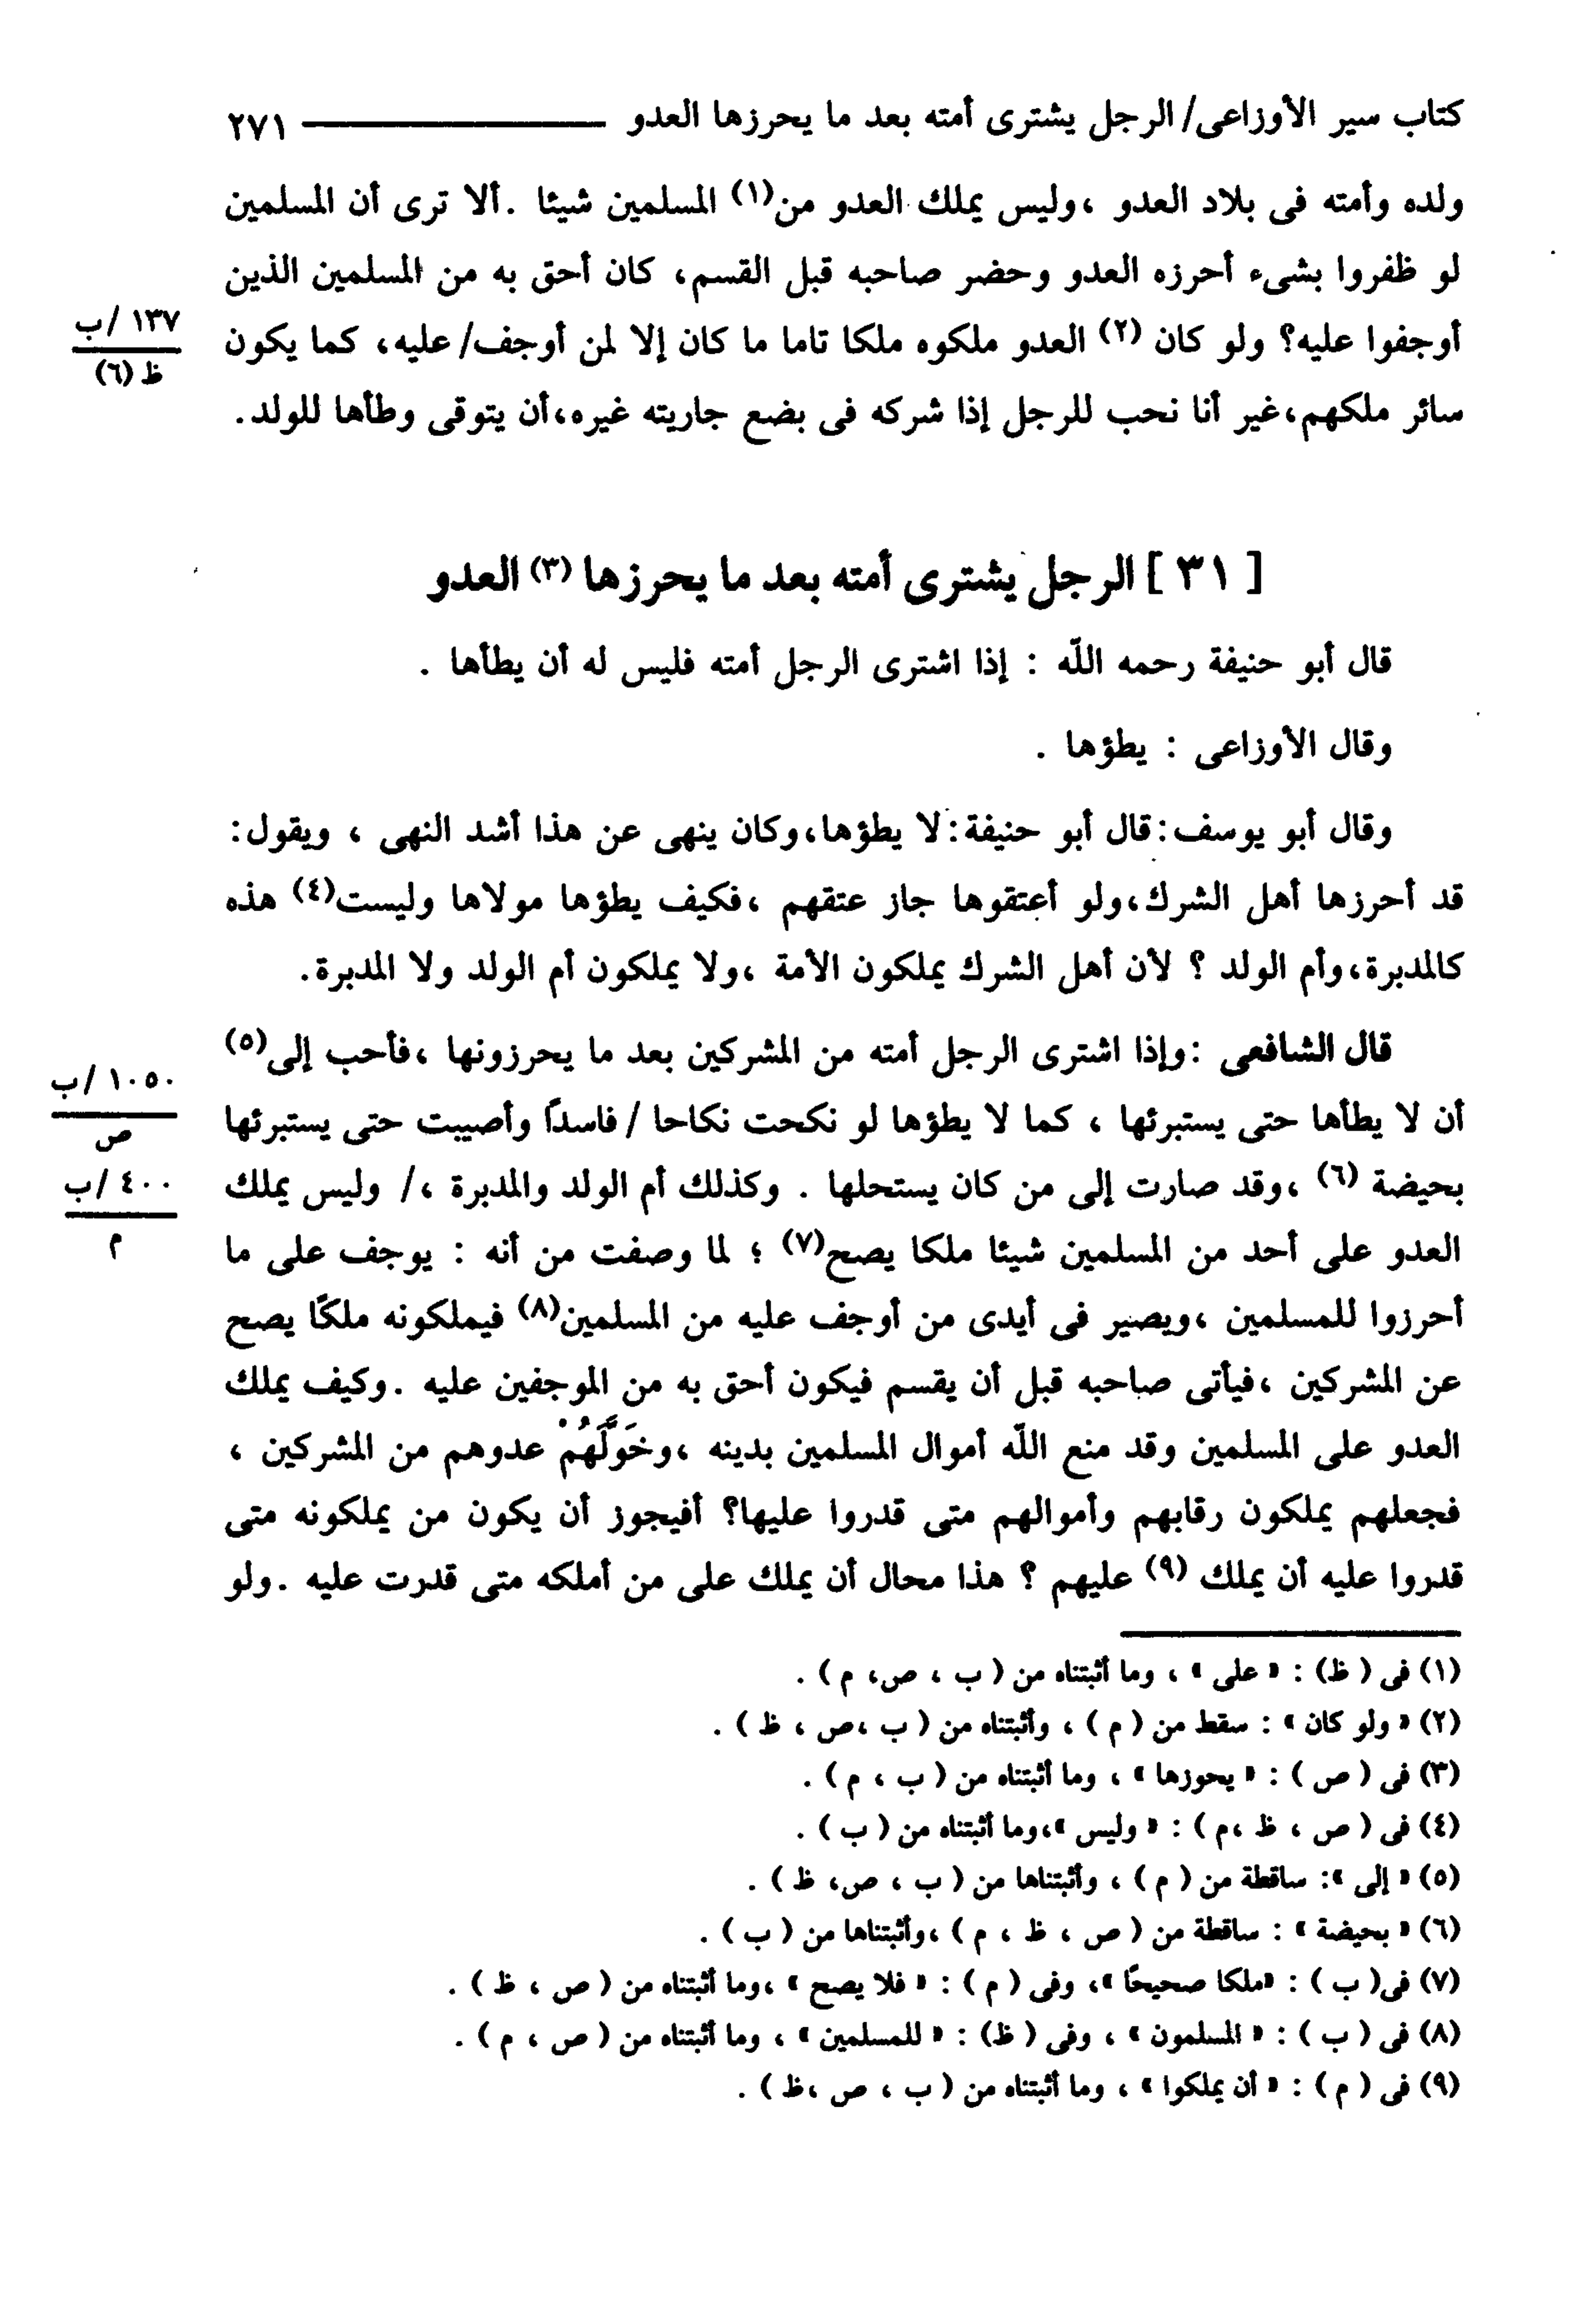 كتاب سير الأوزاعى/ الرجل يشترى أمته بعد ما يحرزها العدو ــــــــ ٢٧١
ولده وأمته فى بلاد العدو ،وليس يملك العدو من(١) المسلمين شيئا . ألا ترى أن المسلمين
لو ظفروا بشىء أحرزه العدو وحضر صاحبه قبل القسم، كان أحق به من المسلمين الذين
أوجفوا عليه؟ ولو كان (٢) العدو ملكوه ملكا تاما ما كان إلا لمن أوجف/ عليه، كما يكون
١٣٧ /ب
ظ (٦)
سائر ملكهم،غير أنا نحب للرجل إذا شركه فى بضع جاريته غيره،أن يتوقى وطأها للولد.
[ ٣١ ] الرجل يشترى أمته بعد ما يحرزها (٣) العدو
قال أبو حنيفة رحمه اللّه : إذا اشترى الرجل أمته فليس له أن يطأها .
وقال الأوزاعى : يطؤها .
وقال أبو يوسف:قال أبو حنيفة:لا يطؤها،وكان ينهى عن هذا أشد النهى ، ويقول:
قد أحرزها أهل الشرك،ولو أعتقوها جاز عتقهم ،فكيف يطؤها مولاها وليست(٤) هذه
كالمدبرة،وأم الولد ؟ لأن أهل الشرك يملكون الأمة ،ولا يملكون أم الولد ولا المدبرة.
قال الشافعى :وإذا اشترى الرجل أمته من المشركين بعد ما يحرزونها ،فأحب إلى(٥)
١٠٥٠ /ب
ص
أن لا يطأها حتى يستبرئها ، كما لا يطؤها لو نكحت نكاحا / فاسدًا وأصيبت حتى يستبرئها
بحيضة (٦) ،وقد صارت إلى من كان يستحلها . وكذلك أم الولد والمدبرة ،/ وليس يملك
٤٠٠ /ب
م
العدو على أحد من المسلمين شيئا ملكا يصح(٧) ؛ لما وصفت من أنه : يوجف على ما
أحرزوا للمسلمين ،ويصير فى أيدى من أوجف عليه من المسلمين(٨) فيملكونه ملكًا يصح
عن المشركين ،فيأتى صاحبه قبل أن يقسم فيكون أحق به من الموجفين عليه .وكيف يملك
العدو على المسلمين وقد منع اللّه أموال المسلمين بدينه ،وخَوَّلَهُمْ عدوهم من المشركين ،
فجعلهم يملكون رقابهم وأموالهم متى قدروا عليها؟ أفيجوز أن يكون من يملكونه متى
قدروا عليه أن يملك (٩) عليهم ؟ هذا محال أن يملك على من أملكه متى قدرت عليه .ولو
(١) فى ( ظ) : « على » ، وما أثبتناه من ( ب ، ص، م ) .
(٢) « ولو كان » : سقط من ( م ) ، وأثبتناه من ( ب ،ص ، ظ ) .
(٣) فى ( ص ) : « يحوزها » ، وما أثبتناه من ( ب ، م ) .
(٤) فى ( ص ، ظ ،م ) : « وليس »،وما أثبتناه من ( ب ) .
(٥) « إلى »: ساقطة من ( م ) ، وأثبتناها من ( ب ، ص، ظ ) .
(٦) « بحيضة » : ساقطة من ( ص ، ظ ، م ) ،وأثبتناها من ( ب ) .
(٧) فى( ب ) : «ملكا صحيحًا »، وفى ( م ) : « فلا يصح » ،وما أثبتناه من ( ص ، ظ ) .
(٨) فى ( ب ) : « المسلمون » ، وفى ( ظ) : « للمسلمين » ، وما أثبتناه من ( ص ، م ) .
(٩) فى ( م ) : « أن يملكوا » ، وما أثبتناه من ( ب ، ص ،ظ ) .